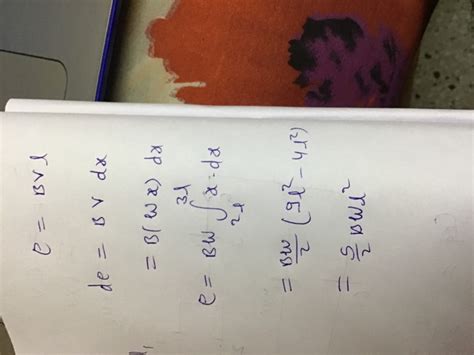 e = BVl
de = BV dx
= B(Wx) dx
e = BW ∫_{2l}^{3l} x·dx
= BW/2 (9l² - 4l²)
= 5/2 BWl²